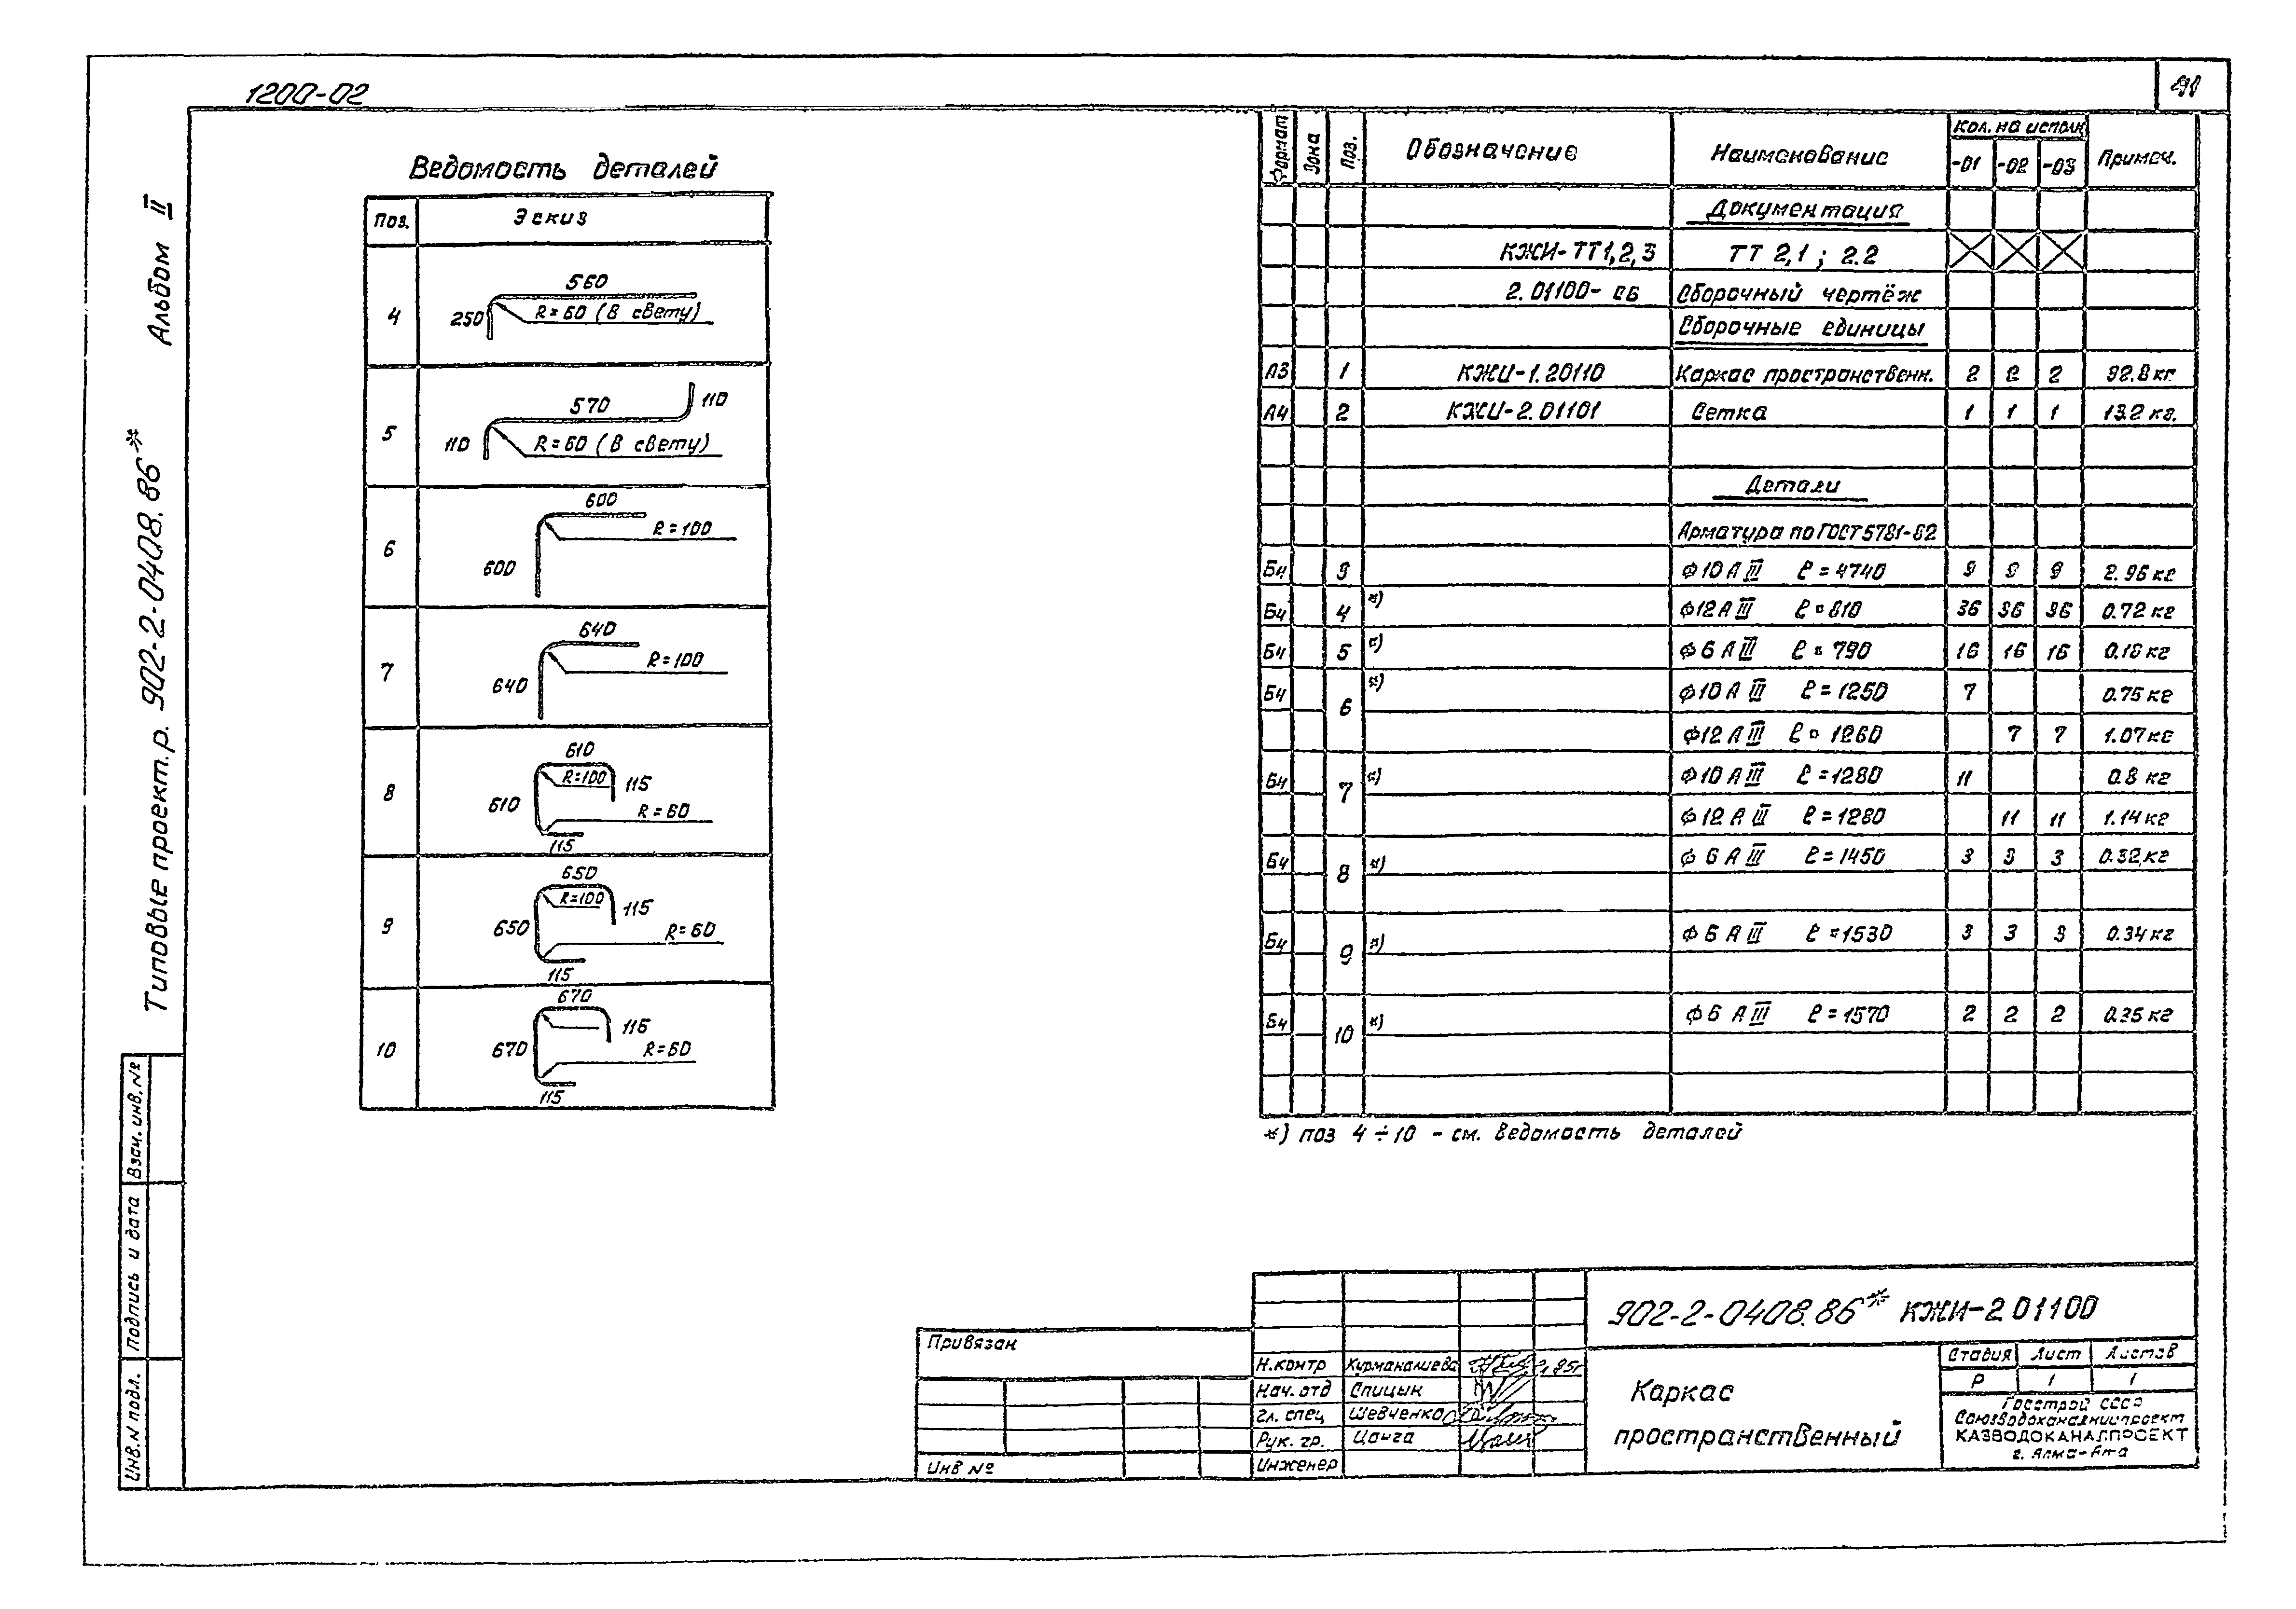 1200-02
Альбом II
Типовые проект.р. 902-2-0408.86*
Взам. инв. №
Подпись и дата
Инв. N подл.
Ведомость деталей
Поз. Эскиз
4 560 250 R=60 (в свету)
5 570 110 110 R=60 (в свету)
6 600 600 R=100
7 640 640 R=100
8 610 610 R=100 115 R=60 115
9 650 650 R=100 115 R=60 115
10 670 670 115 R=60 115
Формат Зона Поз. Обозначение Наименование Кол. на исполн Примеч.
-01 -02 -03
Документация
КЖИ-ТТ1,2,3 ТТ 2,1; 2.2
2.01100-СБ Сборочный чертёж
Сборочные единицы
А3 1 КЖИ-1.20110 Каркас пространственн. 2 2 2 92.8 кг.
А4 2 КЖИ-2.01101 Сетка 1 1 1 13.2 кг.
Детали
Арматура по ГОСТ 5781-82
Бч 3 ϕ10 А III ℓ=4740 9 9 9 2.96 кг
Бч 4 *) ϕ12 А III ℓ=810 36 36 36 0.72 кг
Бч 5 *) ϕ6 А III ℓ=790 16 16 16 0.18 кг
Бч 6 *) ϕ10 А III ℓ=1250 7 0.75 кг
ϕ12 А III ℓ=1260 7 7 1.07 кг
Бч 7 *) ϕ10 А III ℓ=1280 11 0.8 кг
ϕ12 А III ℓ=1280 11 11 1.14 кг
Бч 8 *) ϕ6 А III ℓ=1450 3 3 3 0.32 кг
Бч 9 *) ϕ6 А III ℓ=1530 3 3 3 0.34 кг
Бч 10 *) ϕ6 А III ℓ=1570 2 2 2 0.35 кг
*) поз 4÷10 - см. ведомость деталей
Привязан
Инв №
Н.контр Курманалиева
Нач. отд Спицын
Гл. спец Шевченко
Рук. гр. Цанга
Инженер
902-2-0408.86* КЖИ-2.01100
Каркас
пространственный
Стадия Лист Листов
Р 1 1
Госстрой СССР
Союзводоканалниипроект
КАЗВОДОКАНАЛПРОЕКТ
г. Алма-Ата